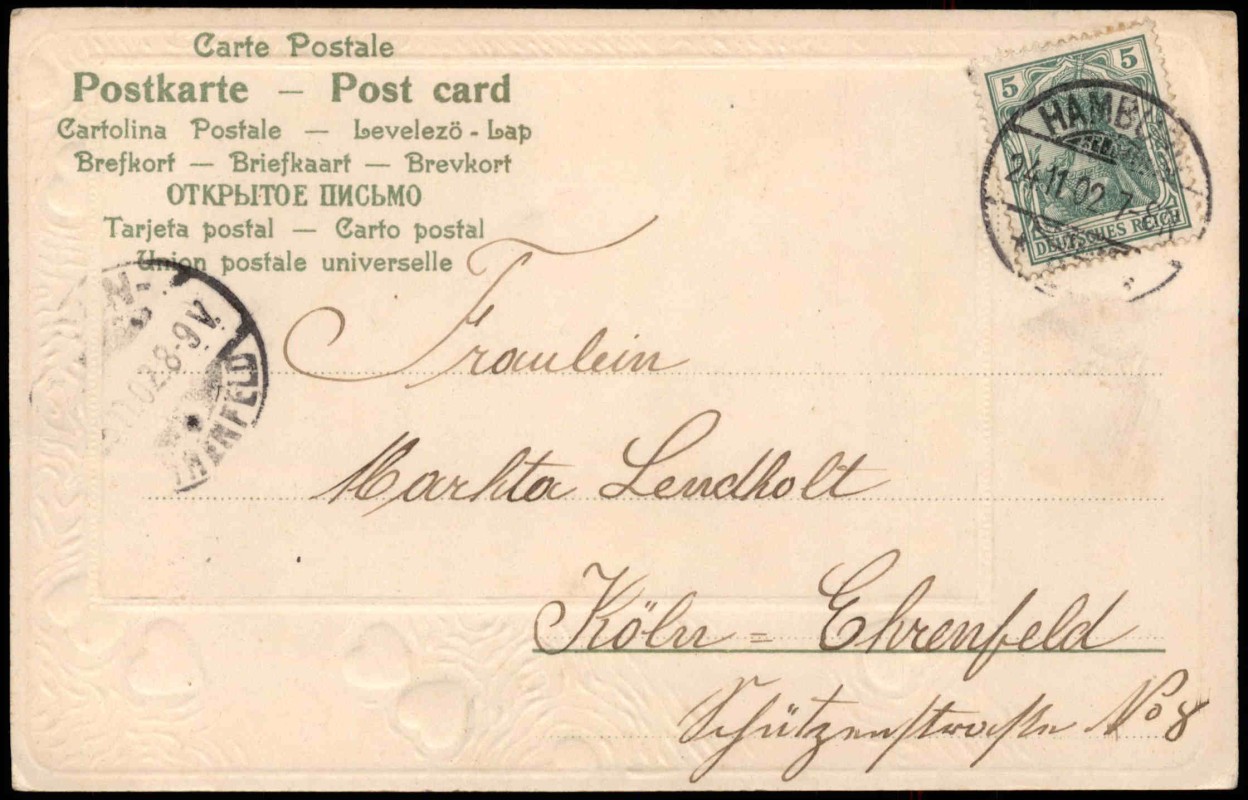 Carte Postale
Postkarte – Post card
Cartolina Postale — Levelezö-Lap
Brefkort — Briefkaart — Brevkort
ОТКРЫТОЕ ПИСЬМО
Tarjeta postal — Carto postal
Union postale universelle
5 5
DEUTSCHES REICH
HAMBU
24.11.02. 7
N-
02.8-9V.
HRENFELD
Fraulein
Markta Lendholt
Köln = Ehrenfeld
Schützenstraße No 8